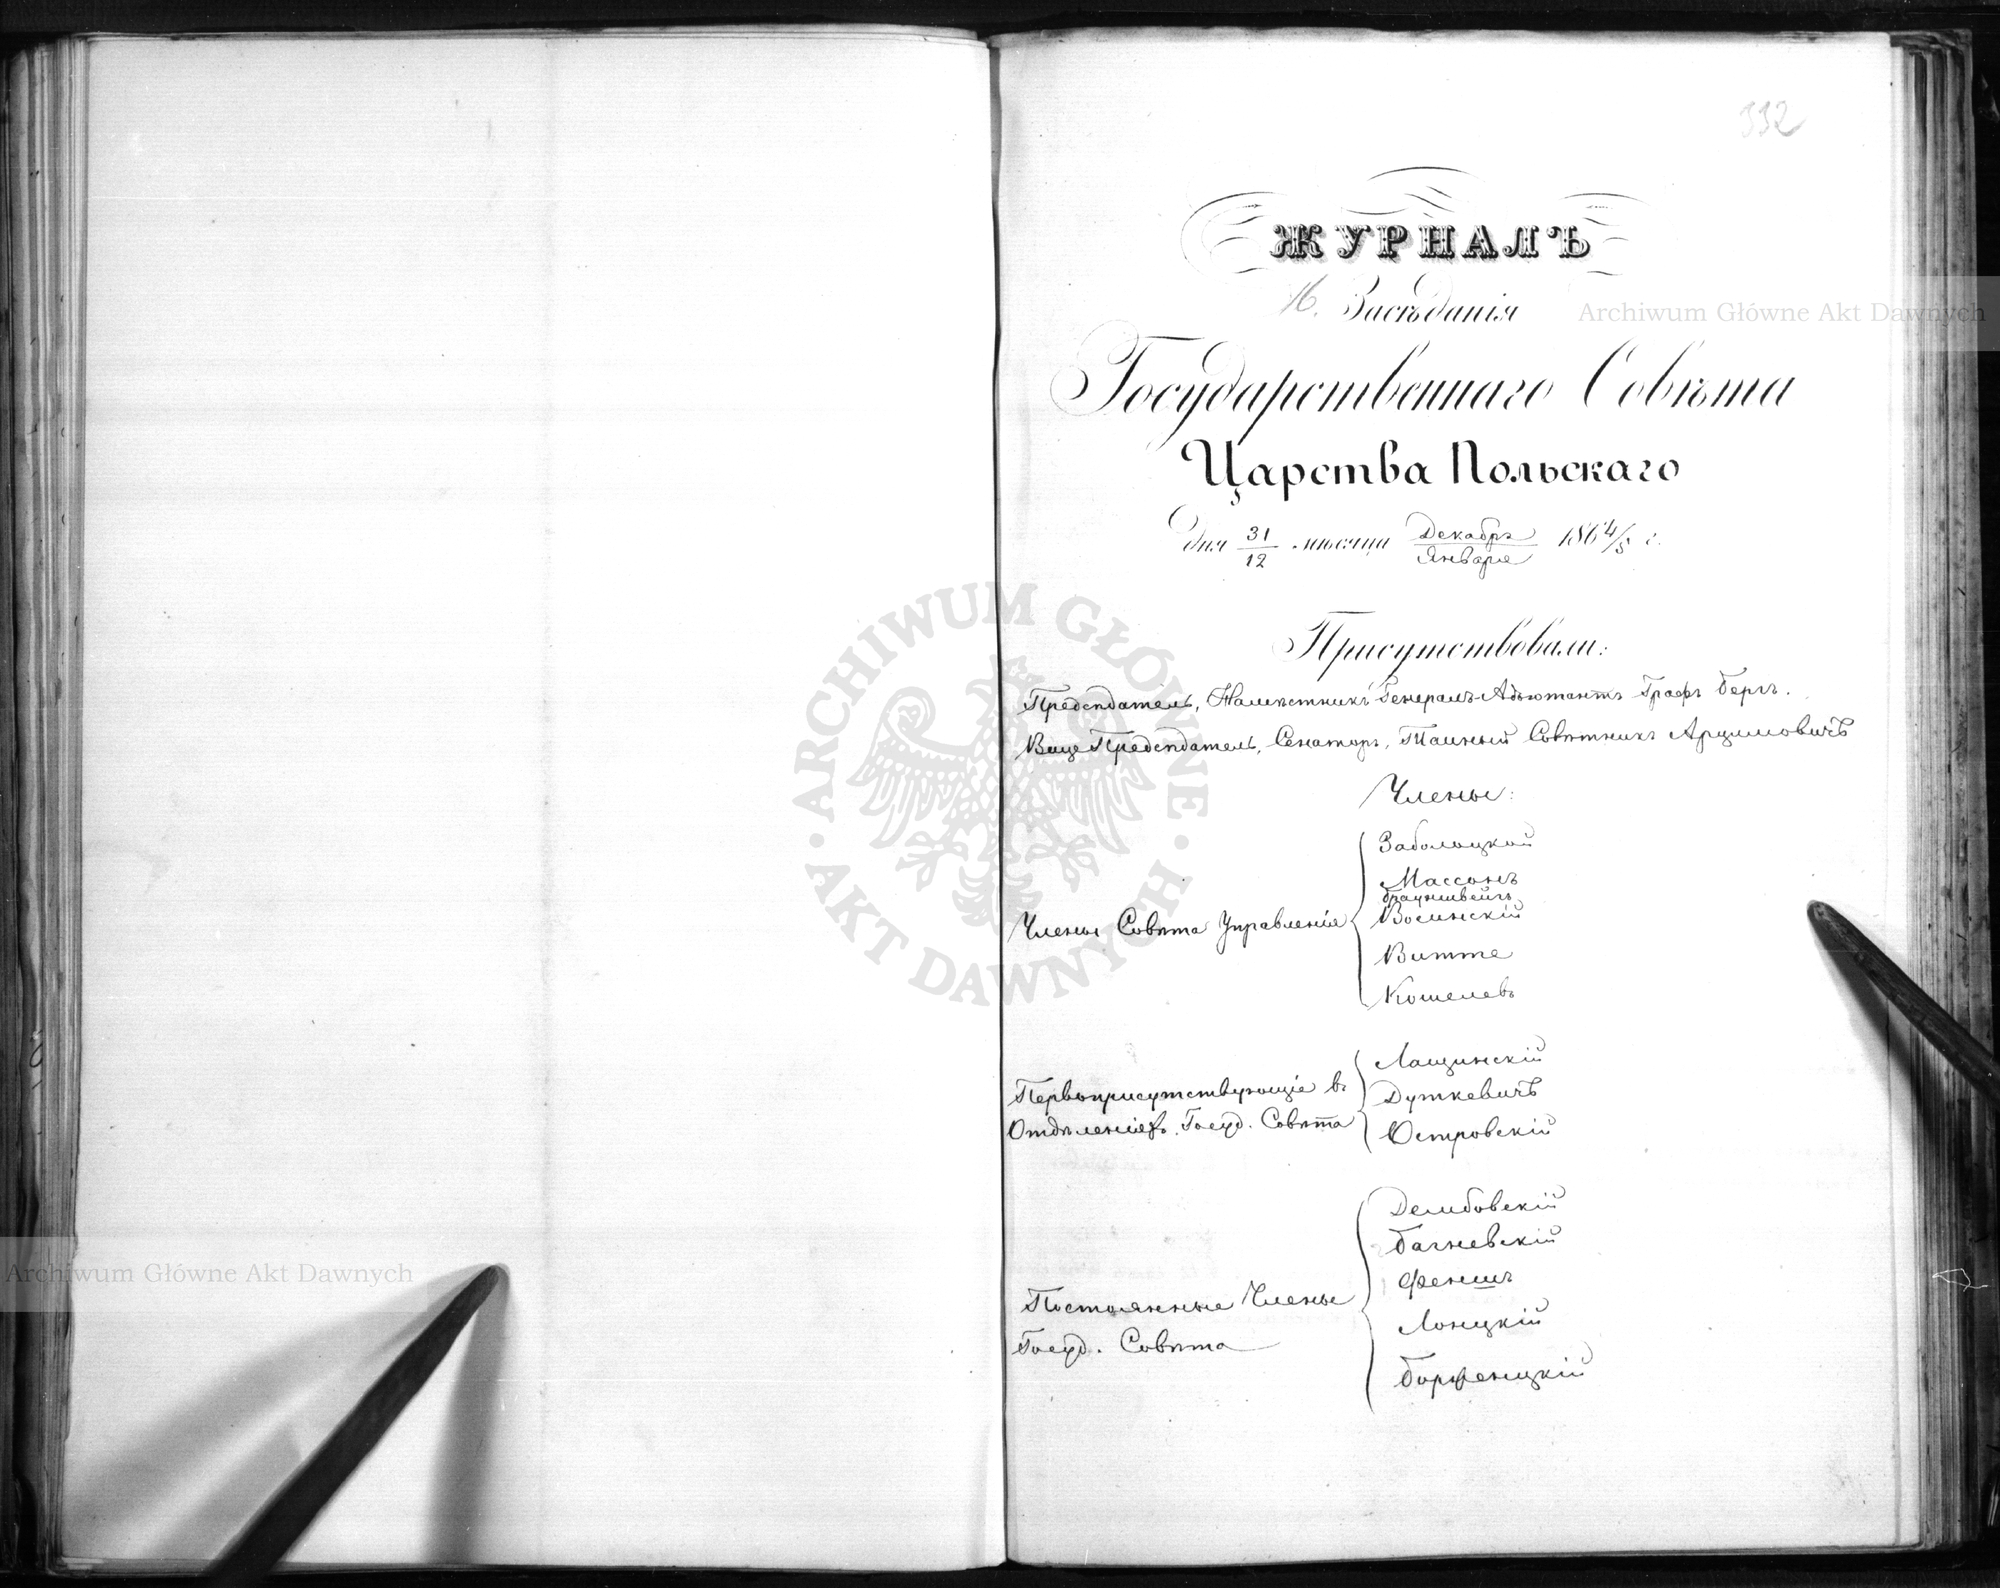 332
ЖУРНАЛЪ
16. Засѣданія
Государственнаго Совѣта
Царства Польскаго
дня 31/12 мѣсяца Декабря/Января 1864/5 г.
Присутствовали:
Предсѣдатель, Намѣстникъ Генералъ-Адъютантъ Графъ Бергъ.
Вице Предсѣдатель, Сенаторъ, Тайный Совѣтникъ Арцимовичъ
Члены:
Заболоцкой
Массонъ
Брауншвейгъ
Члены Совѣта Управленія
Восинскій
Витте
Кошелевъ
Лащинскій
Первоприсутствующіе въ
Дуткевичъ
Отдѣленіяхъ Госуд. Совѣта
Островскій
Дембовскій
Багневскій
Феншъ
Постоянные Члены
Лонцкій
Госуд. Совѣта
Борженцкій
Archiwum Główne Akt Dawnych
ARCHIWUM GŁÓWNE AKT DAWNYCH
Archiwum Główne Akt Dawnych